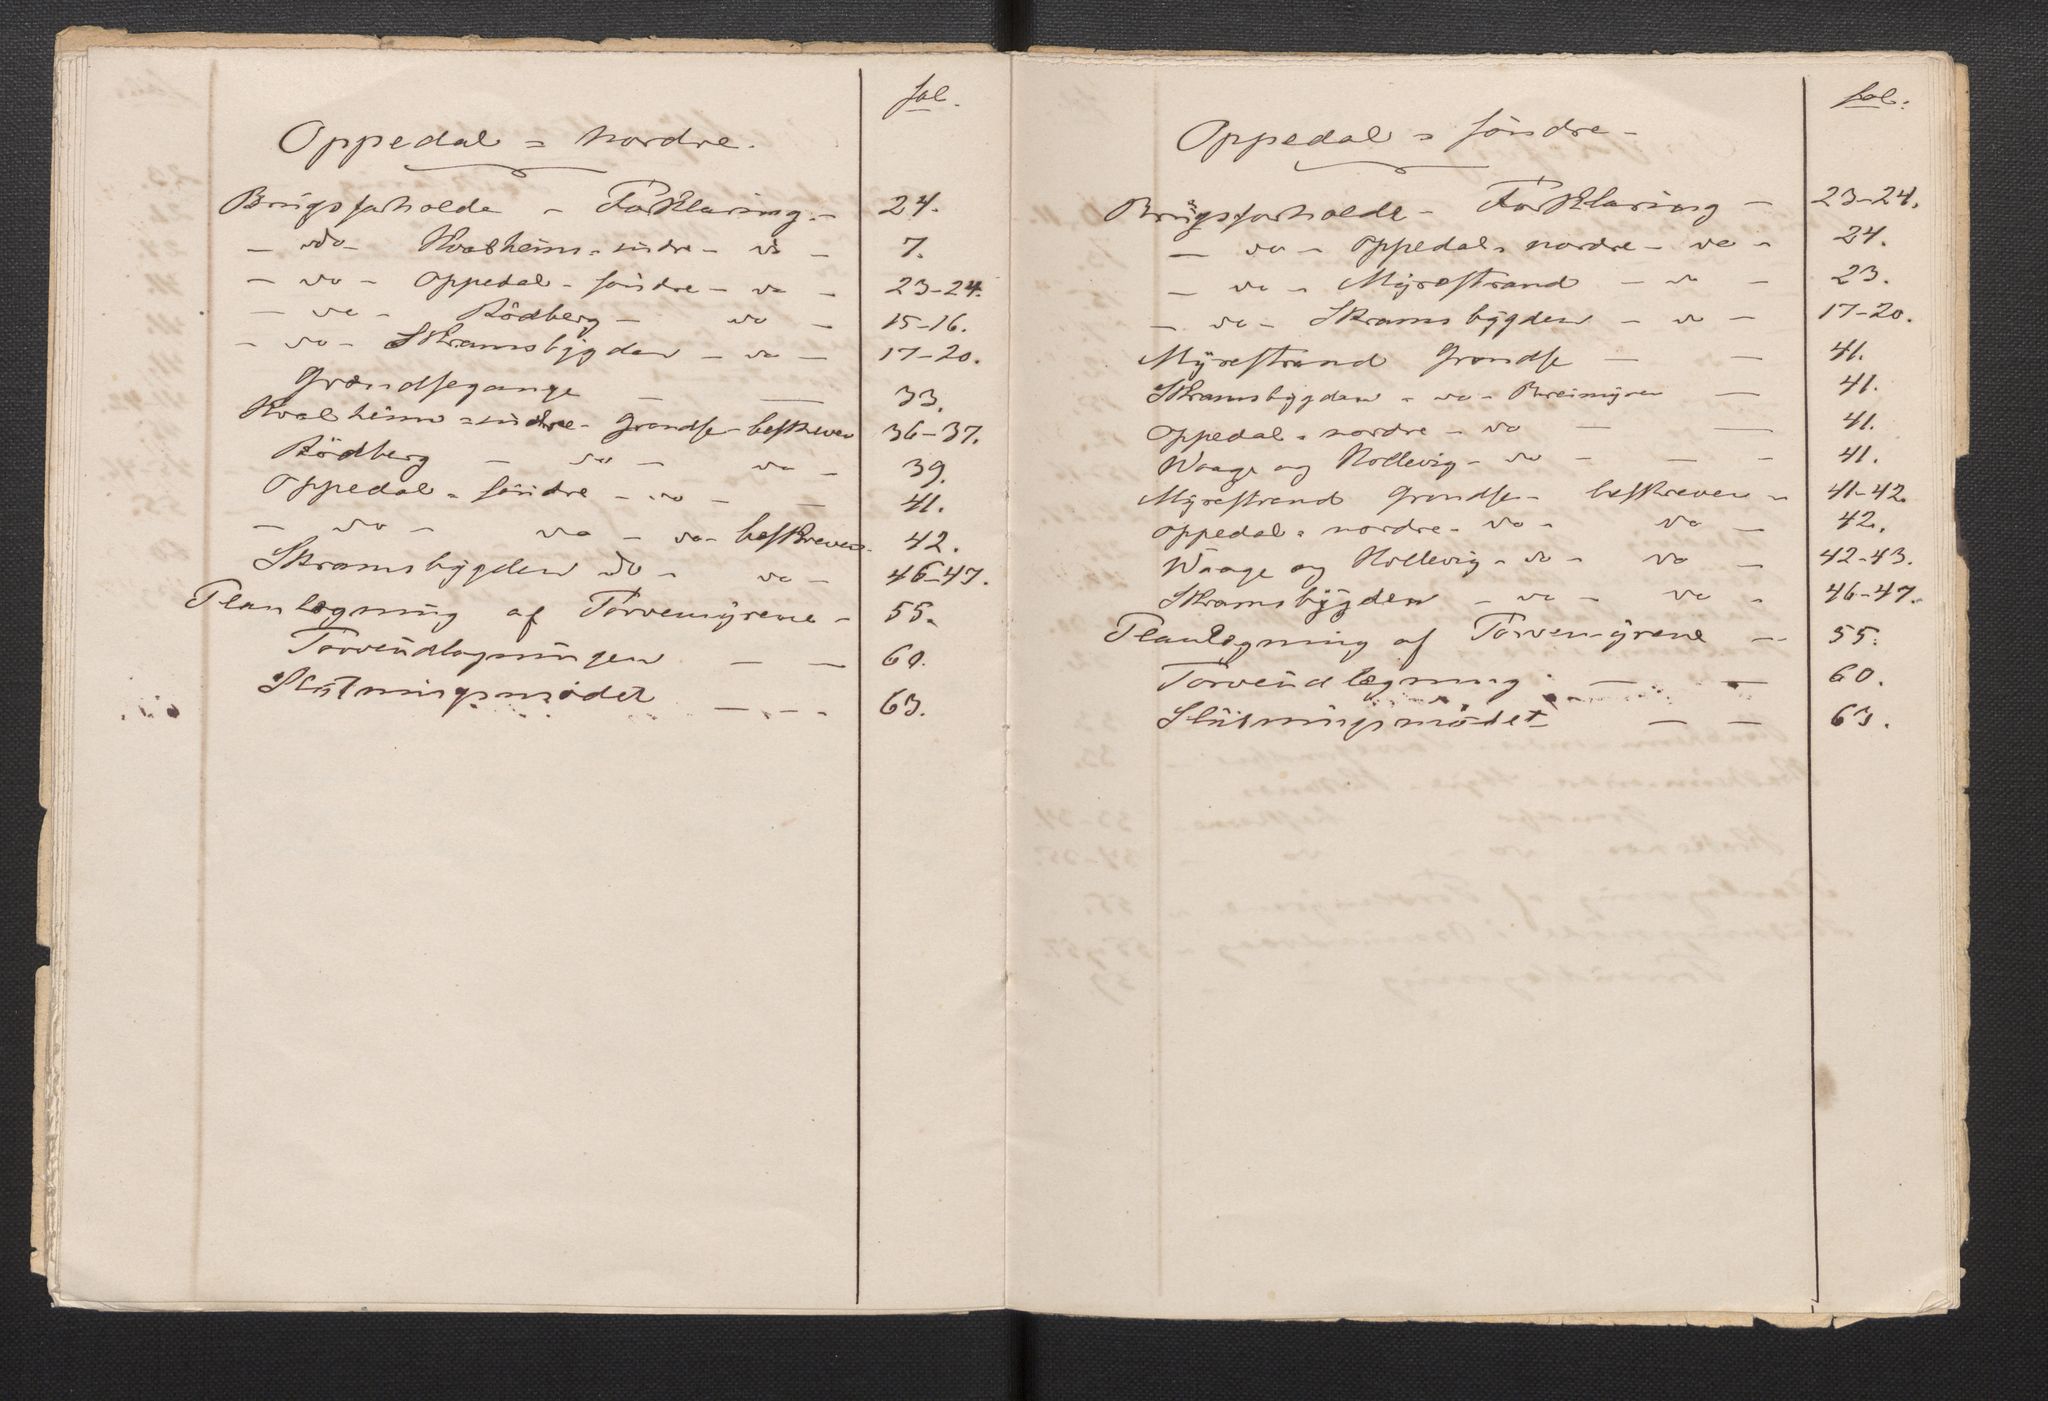 fol.
Oppedal = nordre.
Brügsforholde - Forklaring - 24.
- do - Kvalheim = indre - do - 7.
- do - Oppedal = söndre - do - 23-24.
- do - Rödberg - do - 15-16.
- do - Skramsbÿgden - do - 17-20.
Grændsegange — — 33.
Kvalheim = indre - Grændse - beskreven 36-37.
Rödberg - do - do - 39.
Oppedal = söndre - do - — 41.
- do - do - do - beskreven - 42.
Skramsbÿgden do - do - 46-47.
Planlægning af Torvemÿrene - 55.
Torvüdlægningen — — 60.
Slütningsmödet — - - 63.
fol.
Oppedal = söndre -
Brügsforholde - Forklaring - 23-24.
- do - Oppedal = nordre - do - 24.
- do - Mÿrestrand - do - 23.
- do - Skramsbÿgden - do - 17-20.
Mÿrestrand Grændse — — 41.
Skramsbÿgden - do - Breimÿren — 41.
Oppedal = nordre - do — — 41.
Waage og Hollevig - do - — - 41.
Mÿrestrand Grændse - beskreven - 41-42.
Oppedal = nordre - do - do - 42.
Waage og Hollevig - do - do - 42-43.
Skramsbÿgden - do - do - 46-47.
Planlægning af Torvemÿrene - 55.
Torvüdlægning. — — 60.
Slütningsmödet — — 63.